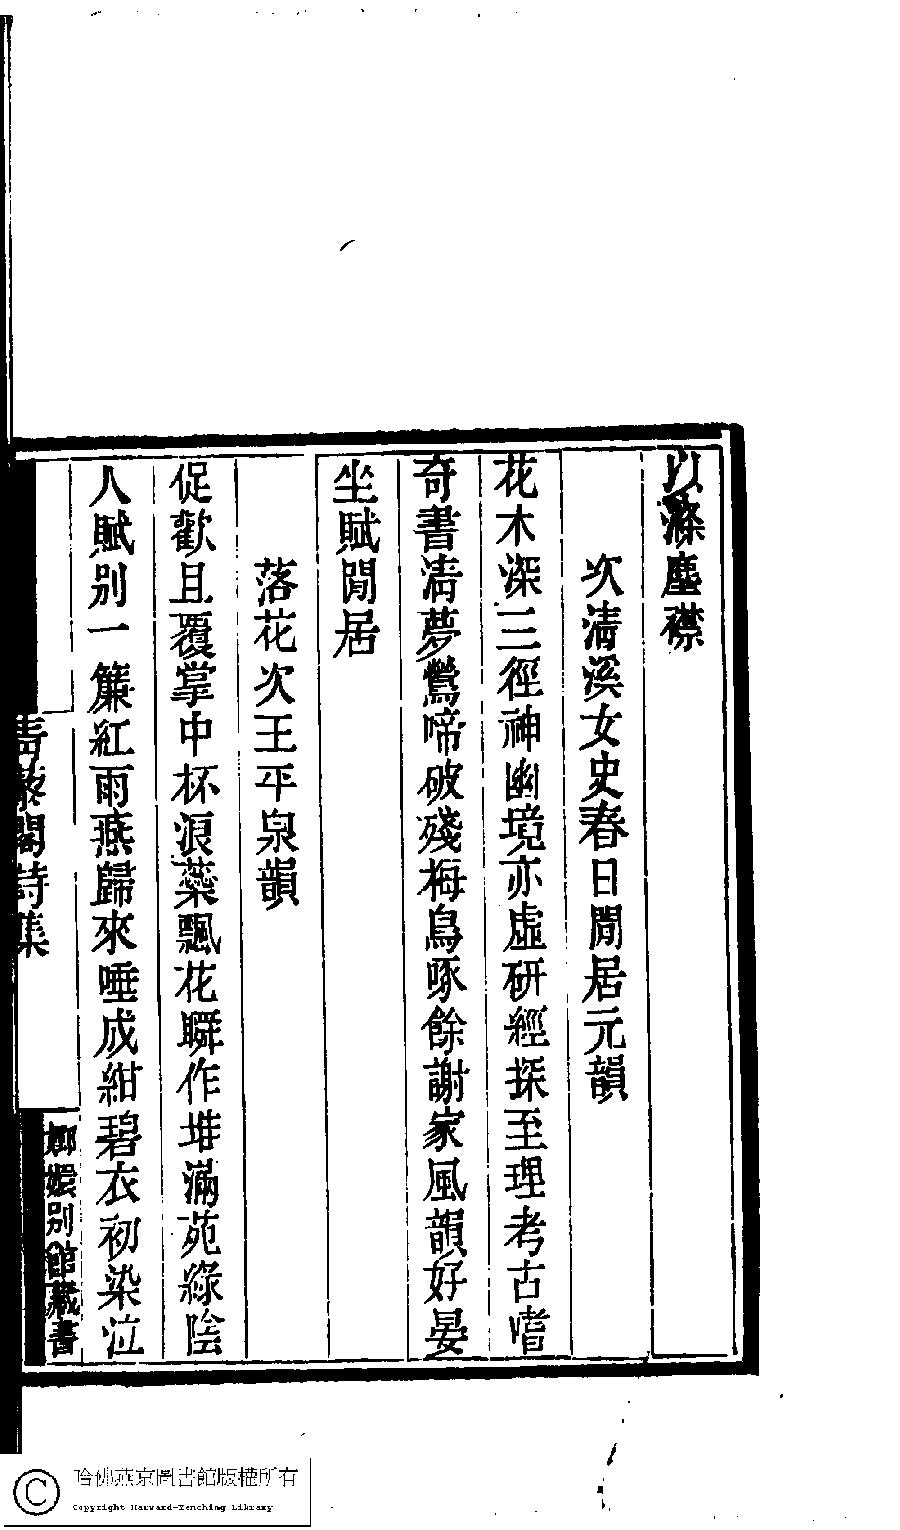 以滌塵襟
次清溪女史春日閒居元韻
花木深三徑神幽境亦虛研經探至理考古嗜
奇書清夢鶯啼破殘梅鳥啄餘謝家風韻好晏
坐賦閒居
落花次王平泉韻
促歡且覆掌中杯浪蘂飄花瞬作堆滿苑綠陰
人賦別一簾紅雨燕歸來唾成紺碧衣初染泣
青藜閣詩集
嫏嬛別館藏書
哈佛燕京圖書館版權所有
Copyright Harvard-Yenching Library